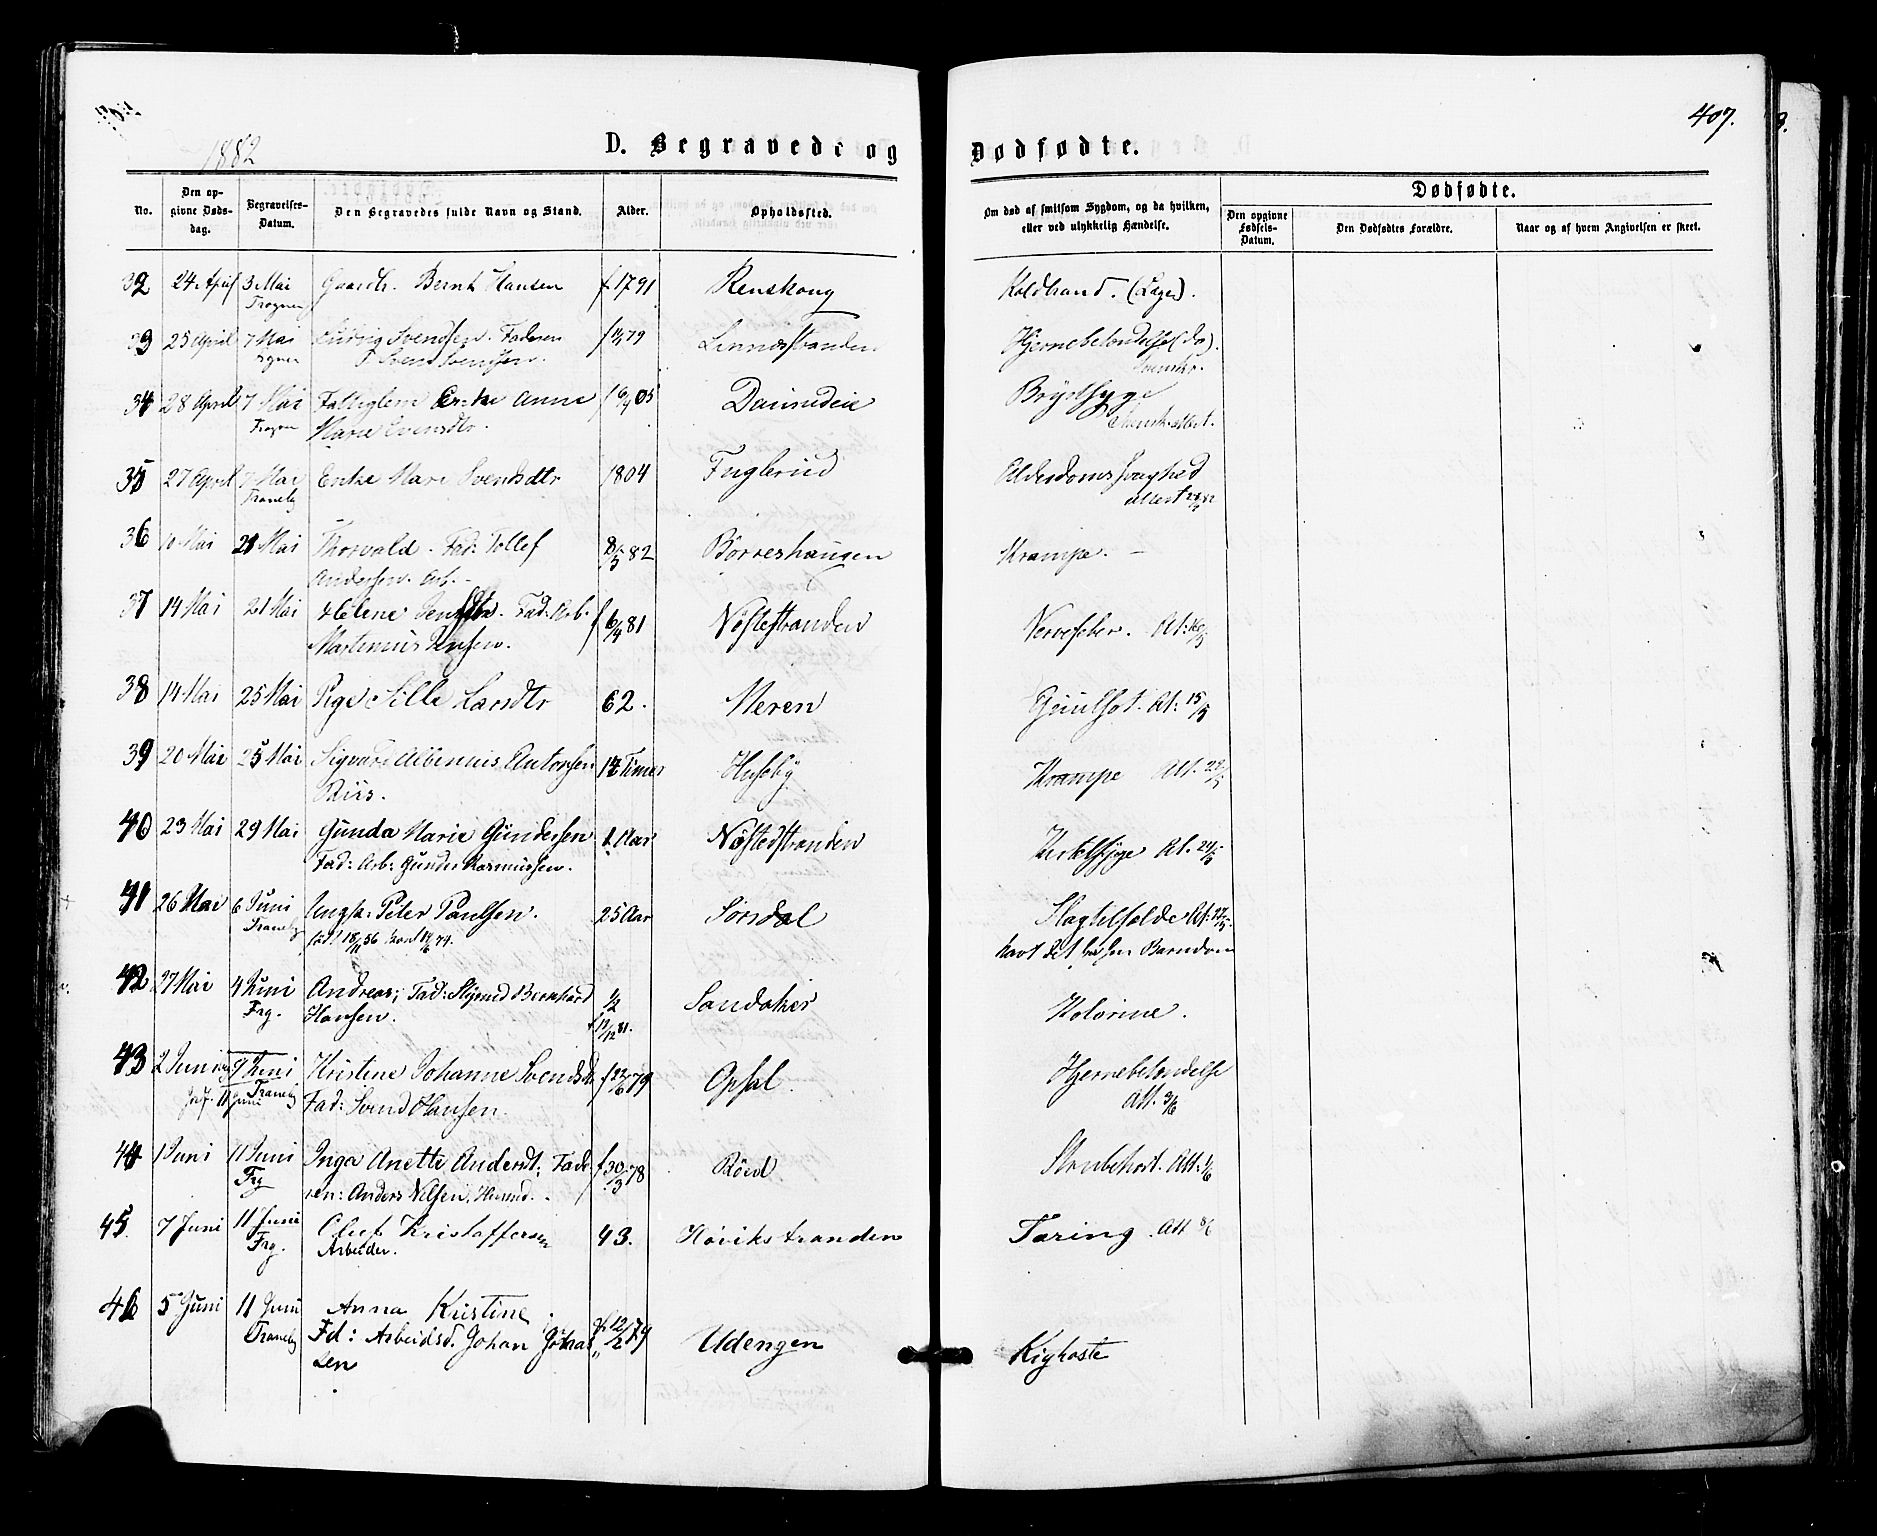 1882
D. Begravede og
Dødfødte.
407.
No.
Den opgivne Døds-dag.
Begravelses-Datum.
Den Begravedes fulde Navn og Stand.
Alder.
Opholdssted.
Om død af smitsom Sygdom, og da hvilken, eller ved ulykkelig Hændelse.
Dødfødte.
Den opgivne Fødsels-Datum.
Den Dødfødtes Forældre.
Naar og af hvem Angivelsen er skeet.
32 24 April 3 Mai Gaardbr. Bernt Hansen f 1791 Renskoug Koldbrand. (Læge).
Frognen
33 25 April 7 Mai Ludvig Svendsen. Faderen f 79 Linnæsstranden Hjernebetændelse (do).
Svend Svendsen.
34 28 April 7 Mai Fattiglem Enke Anne f 05 Daunedeie Brystsyge
Frogn Marie Evensdtr.
35 27 April 7 Mai Enke Mari Svendsdtr 1804 Fuglerud Alderdomssvaghed
Traneby attest
36 10 Mai 21 Mai Thorvald. Fad: Tollef 8/5 82 Børreshaugen Krampe.
Andersen. Arb.
37 14 Mai 21 Mai Helene Fad: Arb. f 6/4 81 Nøstestranden Nervefeber. At:
Martinius Jensen.
38 14 Mai 25 Mai Pige Sille Larsdtr 62. Neren Guulsot. At: 15/5
39 20 Mai 25 Mai Sigvard Albinius Antonsen Timer Huseby Krampe Att.
Riis.
40 23 Mai 29 Mai Gunda Marie Gundersen 1 Aar Nøstedstranden Kirtelsyge At. 24/5
Fad: Arb: Gunder Rasmussen.
41 26 Mai 6 Juni Ungk. Peter Paulsen. 25 Aar Sørsdal Slagtilfælde At: 27/5
Traneby fød 18/11 56
havt det fra sin Barndom
42 27 Mai 4 Juni Andreas; Fad: Bernhard 1/2 Sandaker Kolorine.
Frg. Hansen. f 12/12 81.
43 2 Juni 9 Juni Kristine Johanne Svendsdtr f 22/6 79 Opsal. Hjernebetændelse
11 Juni Traneby Fad: Svend Hansen. Att. 3/6
44 1 Juni 11 Juni Inga Anette Andersdt; Fade- f 30/3 78 Røed Strubehost. Att: 1/6
Frg ren: Anders Nilsen, Husmd.
45 7 Juni 11 Juni Oluf Kristoffersen 43. Høvikstranden Tæring. Att 8/6
Frg. Arbeider.
46 5 Juni 11 Juni Anna Kristine f 12/2 79 Udengen Kighoste
Traneby Fd: Arbeidsd. Johan Johan-
sen